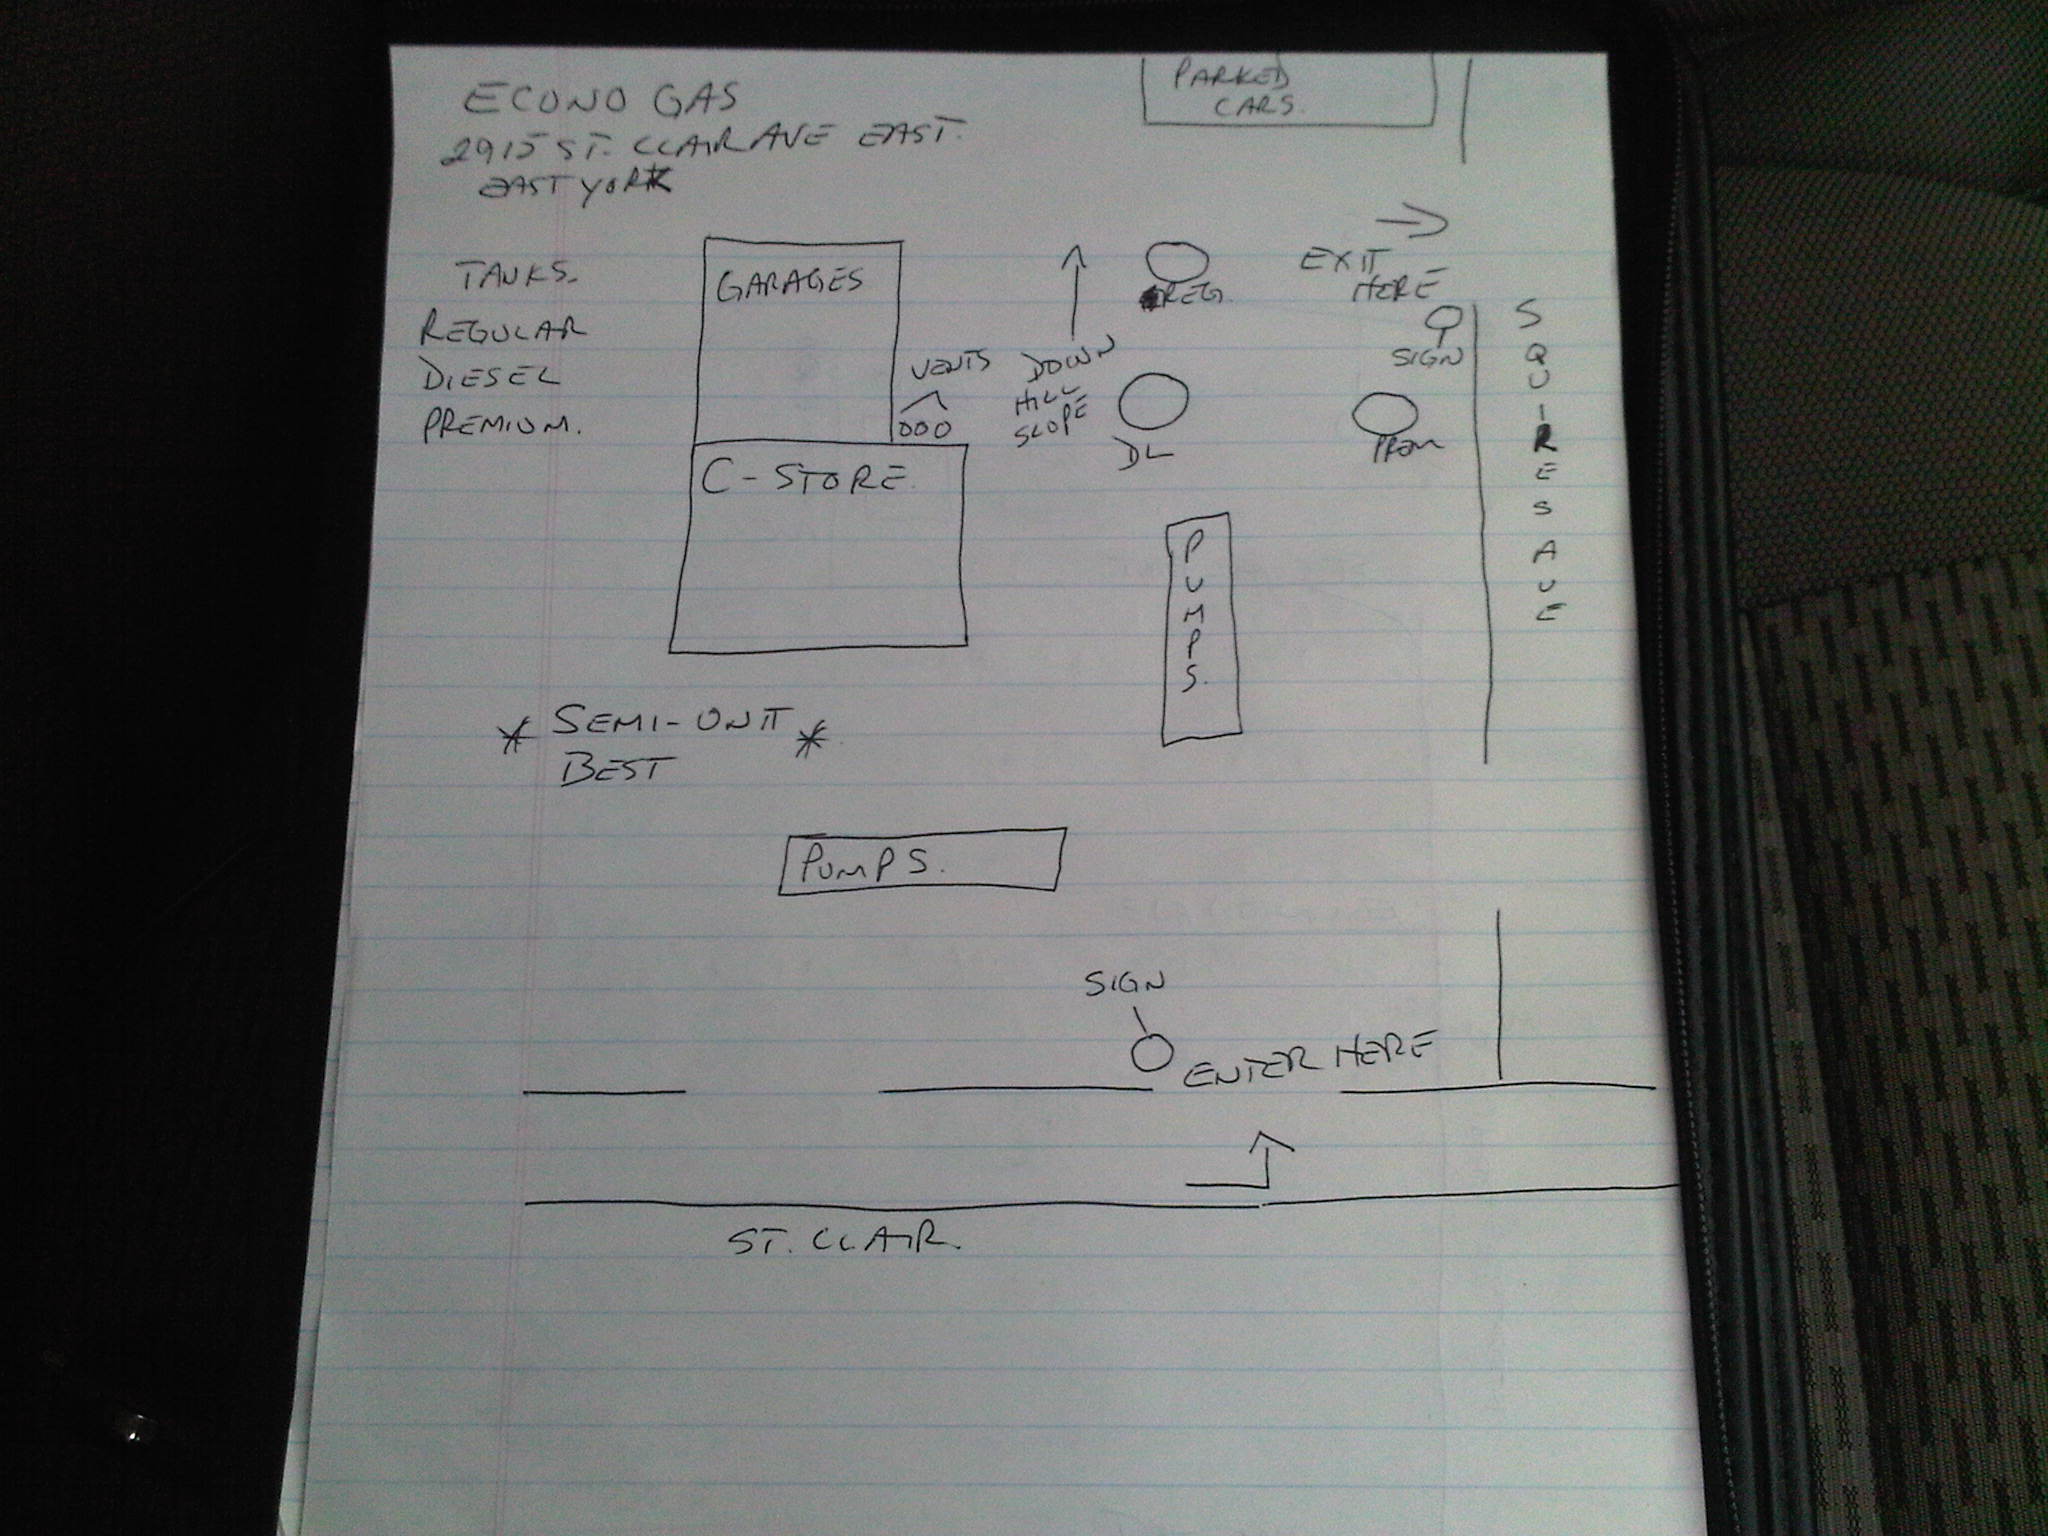 ECONO GAS
2915 ST. CLAIR AVE EAST.
EAST YORK
PARKED
CARS.
TANKS.
REGULAR
DIESEL
PREMIUM.
GARAGES
VENTS
DOWN
HILL
SLOPE
REG.
EXIT
HERE
SIGN
DL
PREM
SQUIRES AVE
C-STORE.
PUMPS.
* SEMI-UNIT *
BEST
PUMPS.
SIGN
ENTER HERE
ST. CLAIR.